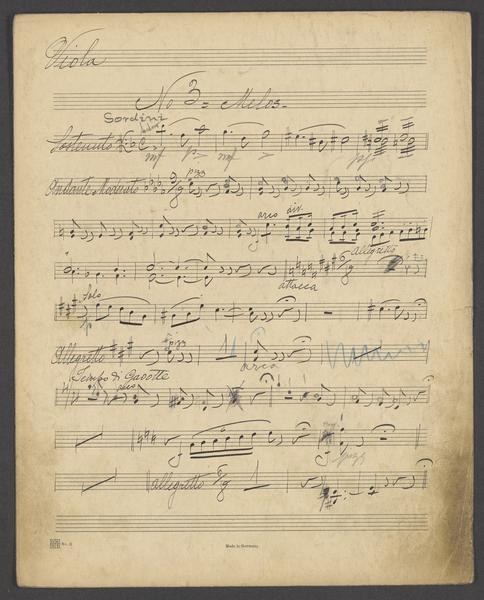 Viola
No 3 = Melos -
Sordini
Sostenuto
mf p > mf > pp
Andante Moderato 6/8 pizz
arco div.
Allegretto
attacca 6/8
Solo
p
Allegretto pizz
arco
Tempo di Gavotte
arco
f f pizz
allegretto 6/8 1
No. 3
Made in Germany